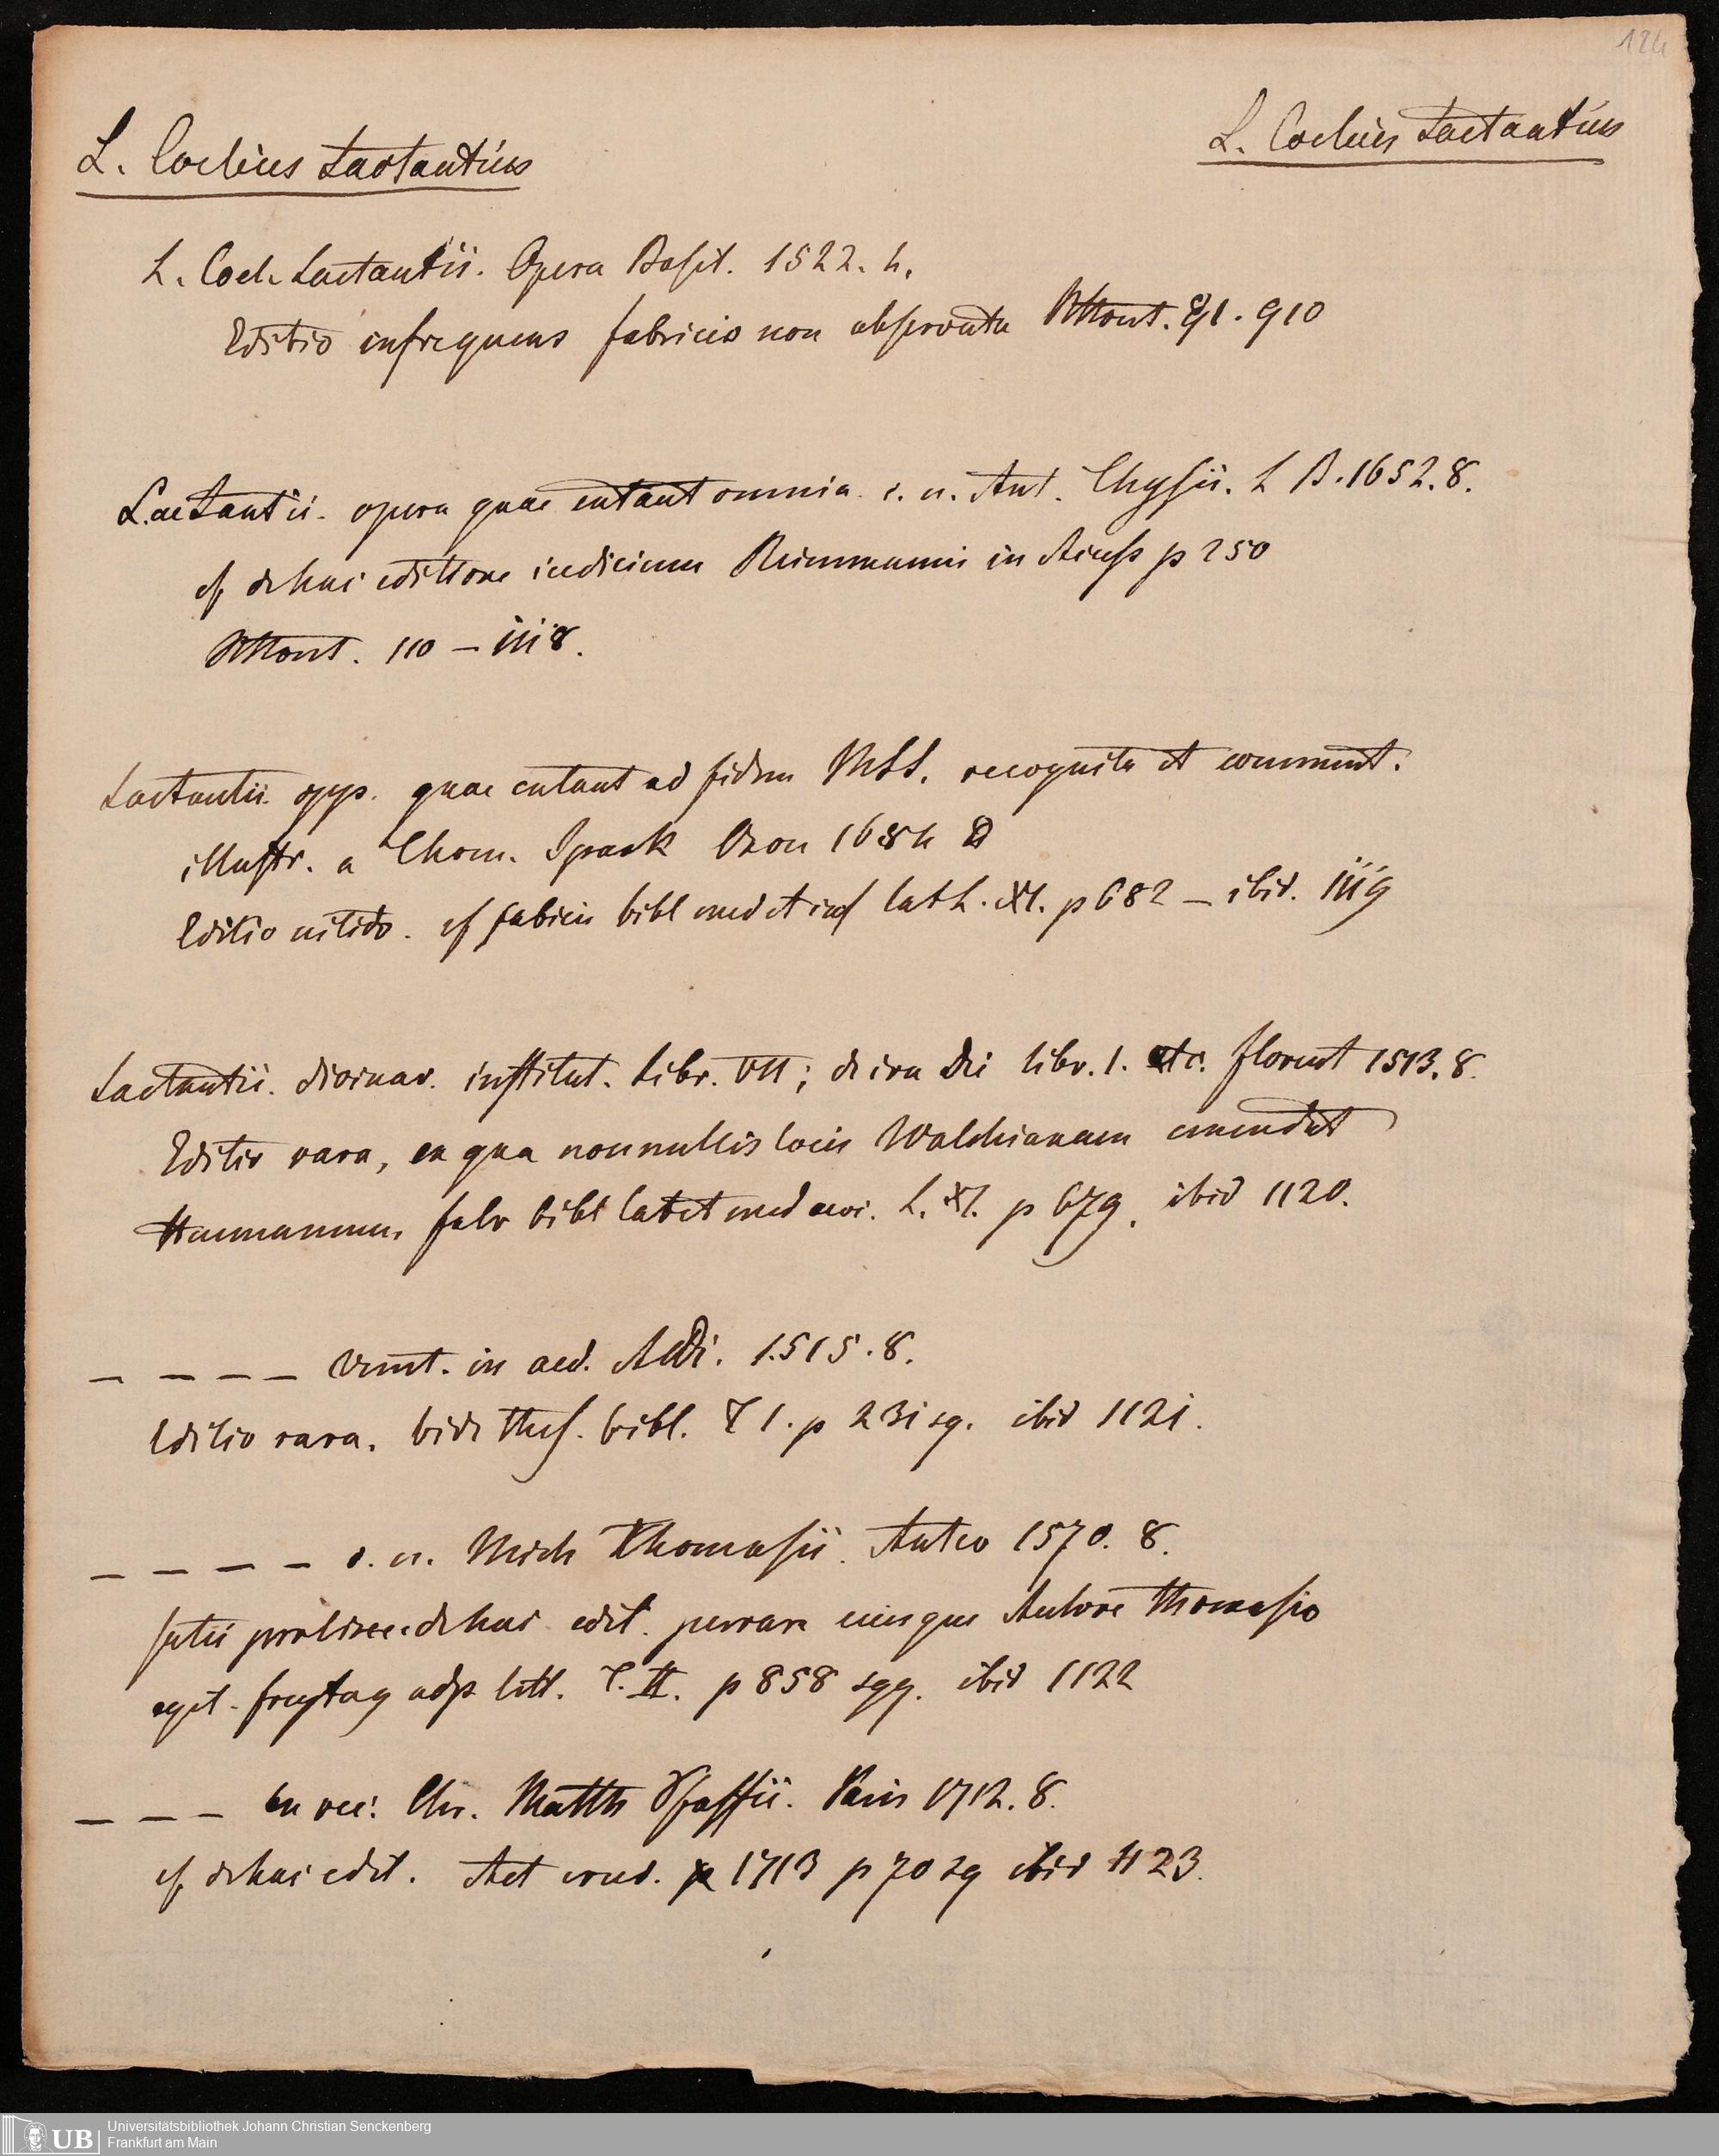 124
L. Coelius Lactantius
L. Coelius Lactantius
L. Coel. Lactantii. Opera Basil. 1522. 4.
Editio infrequens fabricio non observata 91. 910
Lactantii. opera quae extant omnia. c. n. Ant. Thysii. L B. 1652. 8.
cf de hac editione iudicium Reimmanni in p 250
110 – 1118.
Lactantii opp. quae extant ad fidem MSS. recognita et comment.
illustr. a Thom. Spark Oxon 1684 8
Editio nitida. cf fabricii bibl med et inf lat L. XI. p 682 – ibid. 1119
Lactantii. divinar. institut. Libr. VII; de ira Dei libr. 1. etc. florent 1513. 8.
Editio rara, ex qua nonnullis locis Walchianam emendat
Heumannus, fabr bibl lat et med aevi. L. XI. p 679. ibid 1120.
– – – – Venet. in aed. Aldi. 1515. 8.
Editio rara. vide thes. bibl. T 1. p 231 sq. ibid 1121.
– – – – c. n. Mich Thomasii. Antw 1570. 8.
satis prolixe de hac edit. perrara eiusque Autore Thomasio
egit. freytag adp litt. T. II. p 858 sqq. ibid 1122
– – – ex rec: Chr. Matth Pfaffii. Paris 1712. 8.
cf de hac edit. Act erud. 1713 p 70 sq ibid 1123.
UB
Universitätsbibliothek Johann Christian Senckenberg
Frankfurt am Main